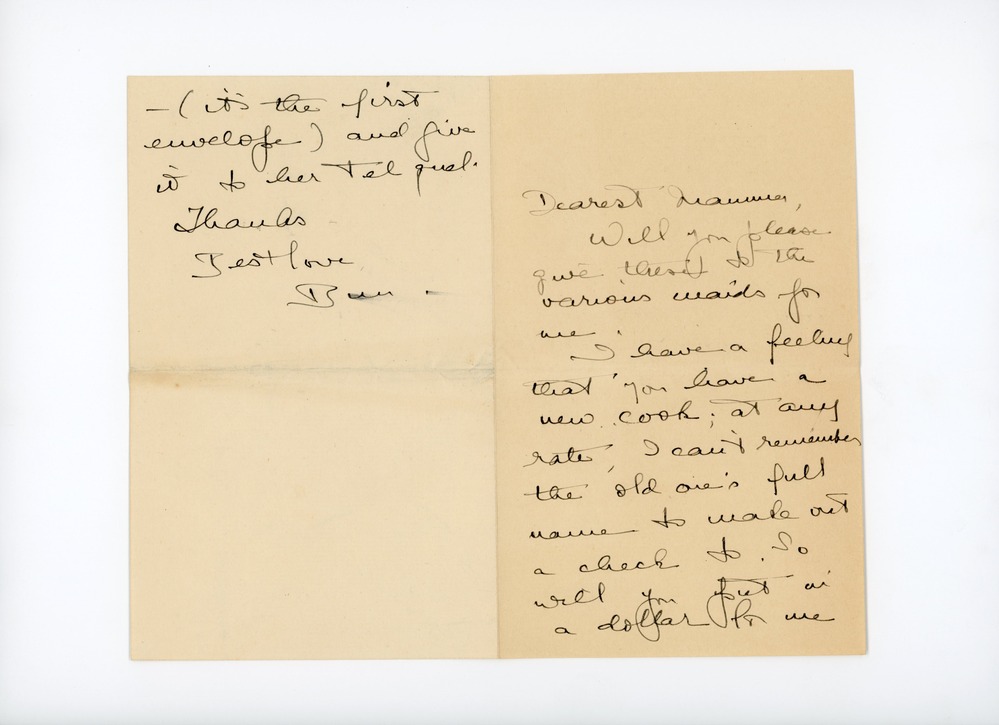 Dearest Mamma,
Will you please
give these to the
various maids for
me.
I have a feeling
that you have a
new cook; at any
rate, I can't remember
the old one's full
name to make out
a check to. So
will you put in
a dollar for me
– (it's the first
envelope) and give
it to her tel quel.
Thanks
Best love